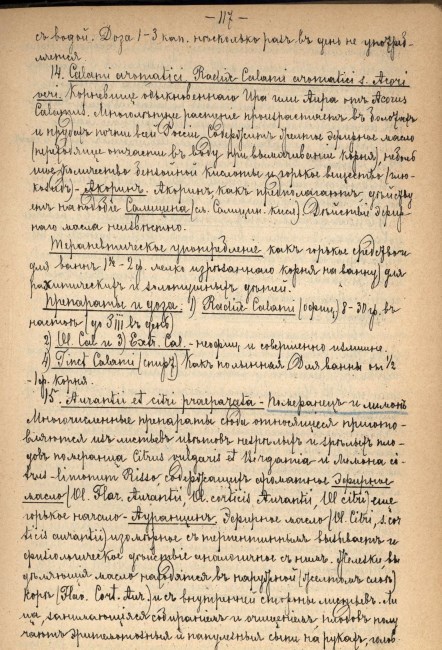 — 117 —
съ водой. Доза 1-3 кап. нѣсколько разъ въ день не употреб-
ляется
14. Calami aromatici. Radix Calami aromatici s. Acori
veri. Корневище обыкновеннаго Ира или Аира отъ Acorus
Calamus. Многолѣтнее растеніе произрастаетъ въ болотахъ
и прудахъ почти всей Россіи. Содержитъ эфирное масло
(переходящее отчасти въ воду при вымачиваніи корня), неболь-
шое количество бензойной кислоты и горькое вещество (глю-
козидъ) - Акоринъ. Акоринъ какъ предполагаютъ дѣйству-
етъ на подобіе Салицина (см. Салицил. кисл.) Дѣйствіе эфир-
наго масла неизвѣстно.
Терапевтическое употребленіе какъ горькое средство и
для ваннъ 1/4 - 2 ф. мелко изрѣзаннаго корня на ванну) для
рахитическихъ и золотушныхъ дѣтей.
Препараты и доза: 1) Radix Calami (офиц.) 8-30 гр. въ
настоѣ (до ʒiii въ день)
2) Ol. Cal. и 3) Extr. Cal. - неофиц. и совершенно излишне.
4) Tinct. Calami (спирт.) Какъ полынная. Для ванны ол. 1/2
- 1 ф. корня.
15. Aurantii et citri praeparata - Померанецъ и лимонъ
Многочисленные препараты сюда относящіеся пригото-
вляются изъ листьевъ цвѣтовъ незрѣлыхъ и зрѣлыхъ пло-
довъ померанца Citrus vulgaris et Bigaradia и Лимона ci-
trus - limonum Risso, содержащихъ ароматное Эфирное
масло (Ol. Flor. Aurantii, Ol. corticis Aurantii, Ol. citri) еще
горькое начало - Ауранцинъ. Эфирное масло (Ol. Citri, s. cor-
ticis aurantii) изомерное съ терпентиннымъ вызываетъ и
физіологическое дѣйствіе аналогичное съ нимъ. Железки вы-
дѣляющія масло находятся въ наружной (желтомъ слоѣ)
коры (Flav. Cort. Aur.) и съ внутренней стороны листьевъ. Ли-
ца, занимающіяся собираніемъ и очищеніемъ плодовъ полу-
чаютъ эритематозныя и папулезныя сыпи на рукахъ, голов-